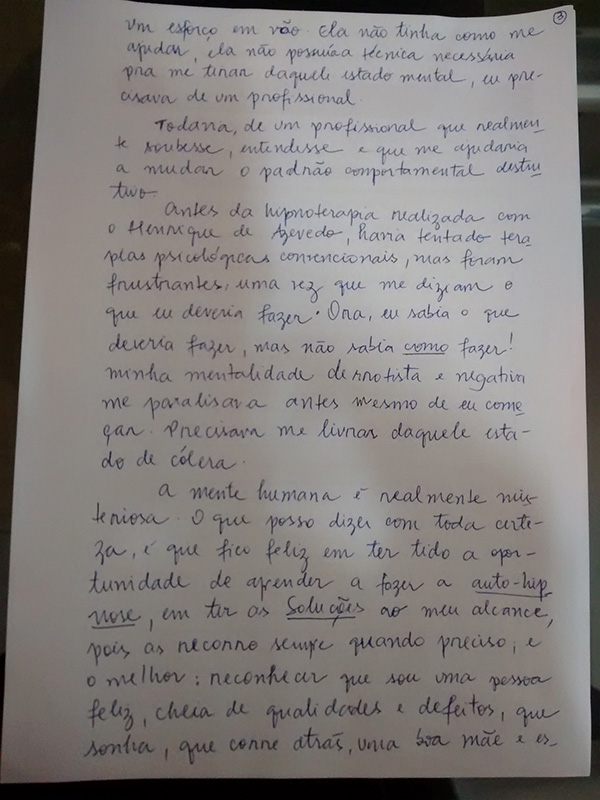 3
um esforço em vão. Ela não tinha como me
ajudar, ela não possuía a técnica necessária
pra me tirar daquele estado mental, eu pre-
cisava de um profissional.
Todavia, de um profissional que realmen
te soubesse, entendesse e que me ajudaria
a mudar o padrão comportamental destru
tivo.
Antes da hipnoterapia realizada com
o Henrique de Azevedo, havia tentado tera
pias psicológicas convencionais, mas foram
frustrantes, uma vez que me diziam o
que eu deveria fazer. Ora, eu sabia o que
deveria fazer, mas não sabia como fazer!
Minha mentalidade derrotista e negativa
me paralisava antes mesmo de eu come
çar. Precisava me livrar daquele esta-
do de cólera.
A mente humana é realmente mis-
teriosa. O que posso dizer com toda certe-
za, é que fico feliz em ter tido a opor-
tunidade de aprender a fazer a auto-hip
nose, em ter as Soluções ao meu alcance,
pois as recorro sempre quando preciso; e
o melhor: reconhecer que sou uma pessoa
feliz, cheia de qualidades e defeitos, que
sonha, que corre atrás, uma boa mãe e es-